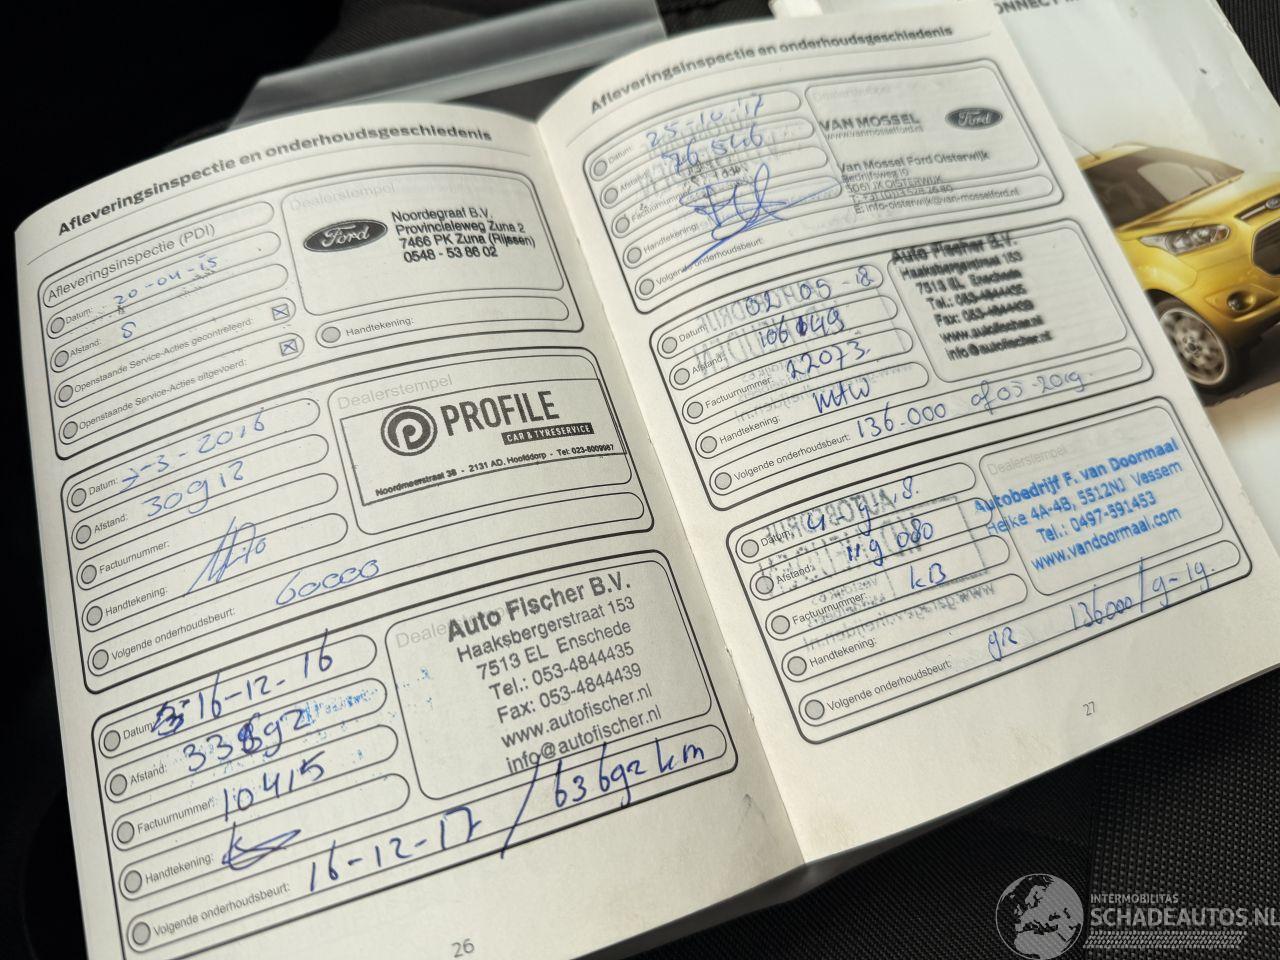 Afleveringsinspectie en onderhoudsgeschiedenis
Afleveringsinspectie (PDI)
Datum: 20-04-15
Afstand: 5
Openstaande Service-Acties gecontroleerd: ☒
Openstaande Service-Acties uitgevoerd: ☒
Dealerstempel
Ford
Noordegraaf B.V.
Provincialeweg Zuna 2
7466 PK Zuna (Rijssen)
0548 - 53 86 02
Handtekening:
Datum: 7-3-2016
Afstand: 30912
Factuurnummer:
Handtekening:
Volgende onderhoudsbeurt: 60000
Dealerstempel
PROFILE
CAR & TYRESERVICE
Noordmeerstraat 38 - 2131 AD. Hoofddorp - Tel: 023-8009987
Datum: 16-12-16
Afstand: 33692
Factuurnummer: 10415
Handtekening:
Volgende onderhoudsbeurt: 16-12-17 / 63692 km
Auto Fischer B.V.
Haaksbergerstraat 153
7513 EL Enschede
Tel.: 053-4844435
Fax: 053-4844439
www.autofischer.nl
info@autofischer.nl
26
Afleveringsinspectie en onderhoudsgeschiedenis
Datum: 25-10-'17
Afstand: 76.546
Factuurnummer:
Handtekening:
Volgende onderhoudsbeurt:
Dealerstempel
VAN MOSSEL
www.vanmosselford.nl
Ford
Van Mossel Ford Oisterwijk
Bedrijfsweg 10
5061 JX OISTERWIJK
E: info-oisterwijk@van-mosselford.nl
Datum: 02-05-18
Afstand: 106149
Factuurnummer: 22073
Handtekening:
Volgende onderhoudsbeurt: 136.000 of 05-2019.
Auto Fischer B.V.
Haaksbergerstraat 153
7513 EL Enschede
Tel.: 053-4844435
Fax: 053-4844439
www.autofischer.nl
info@autofischer.nl
Datum: 4 9 18.
Afstand: 119 080
Factuurnummer: KB
Handtekening:
Volgende onderhoudsbeurt: gr 136000/9-19.
Dealerstempel
Autobedrijf F. van Doormaal
Heike 4A-4B, 5512NJ Vessem
Tel.: 0497-591453
www.vandoormaal.com
27
CONNECT
Ford
INTERMOBILITAS
SCHADEAUTOS.NL